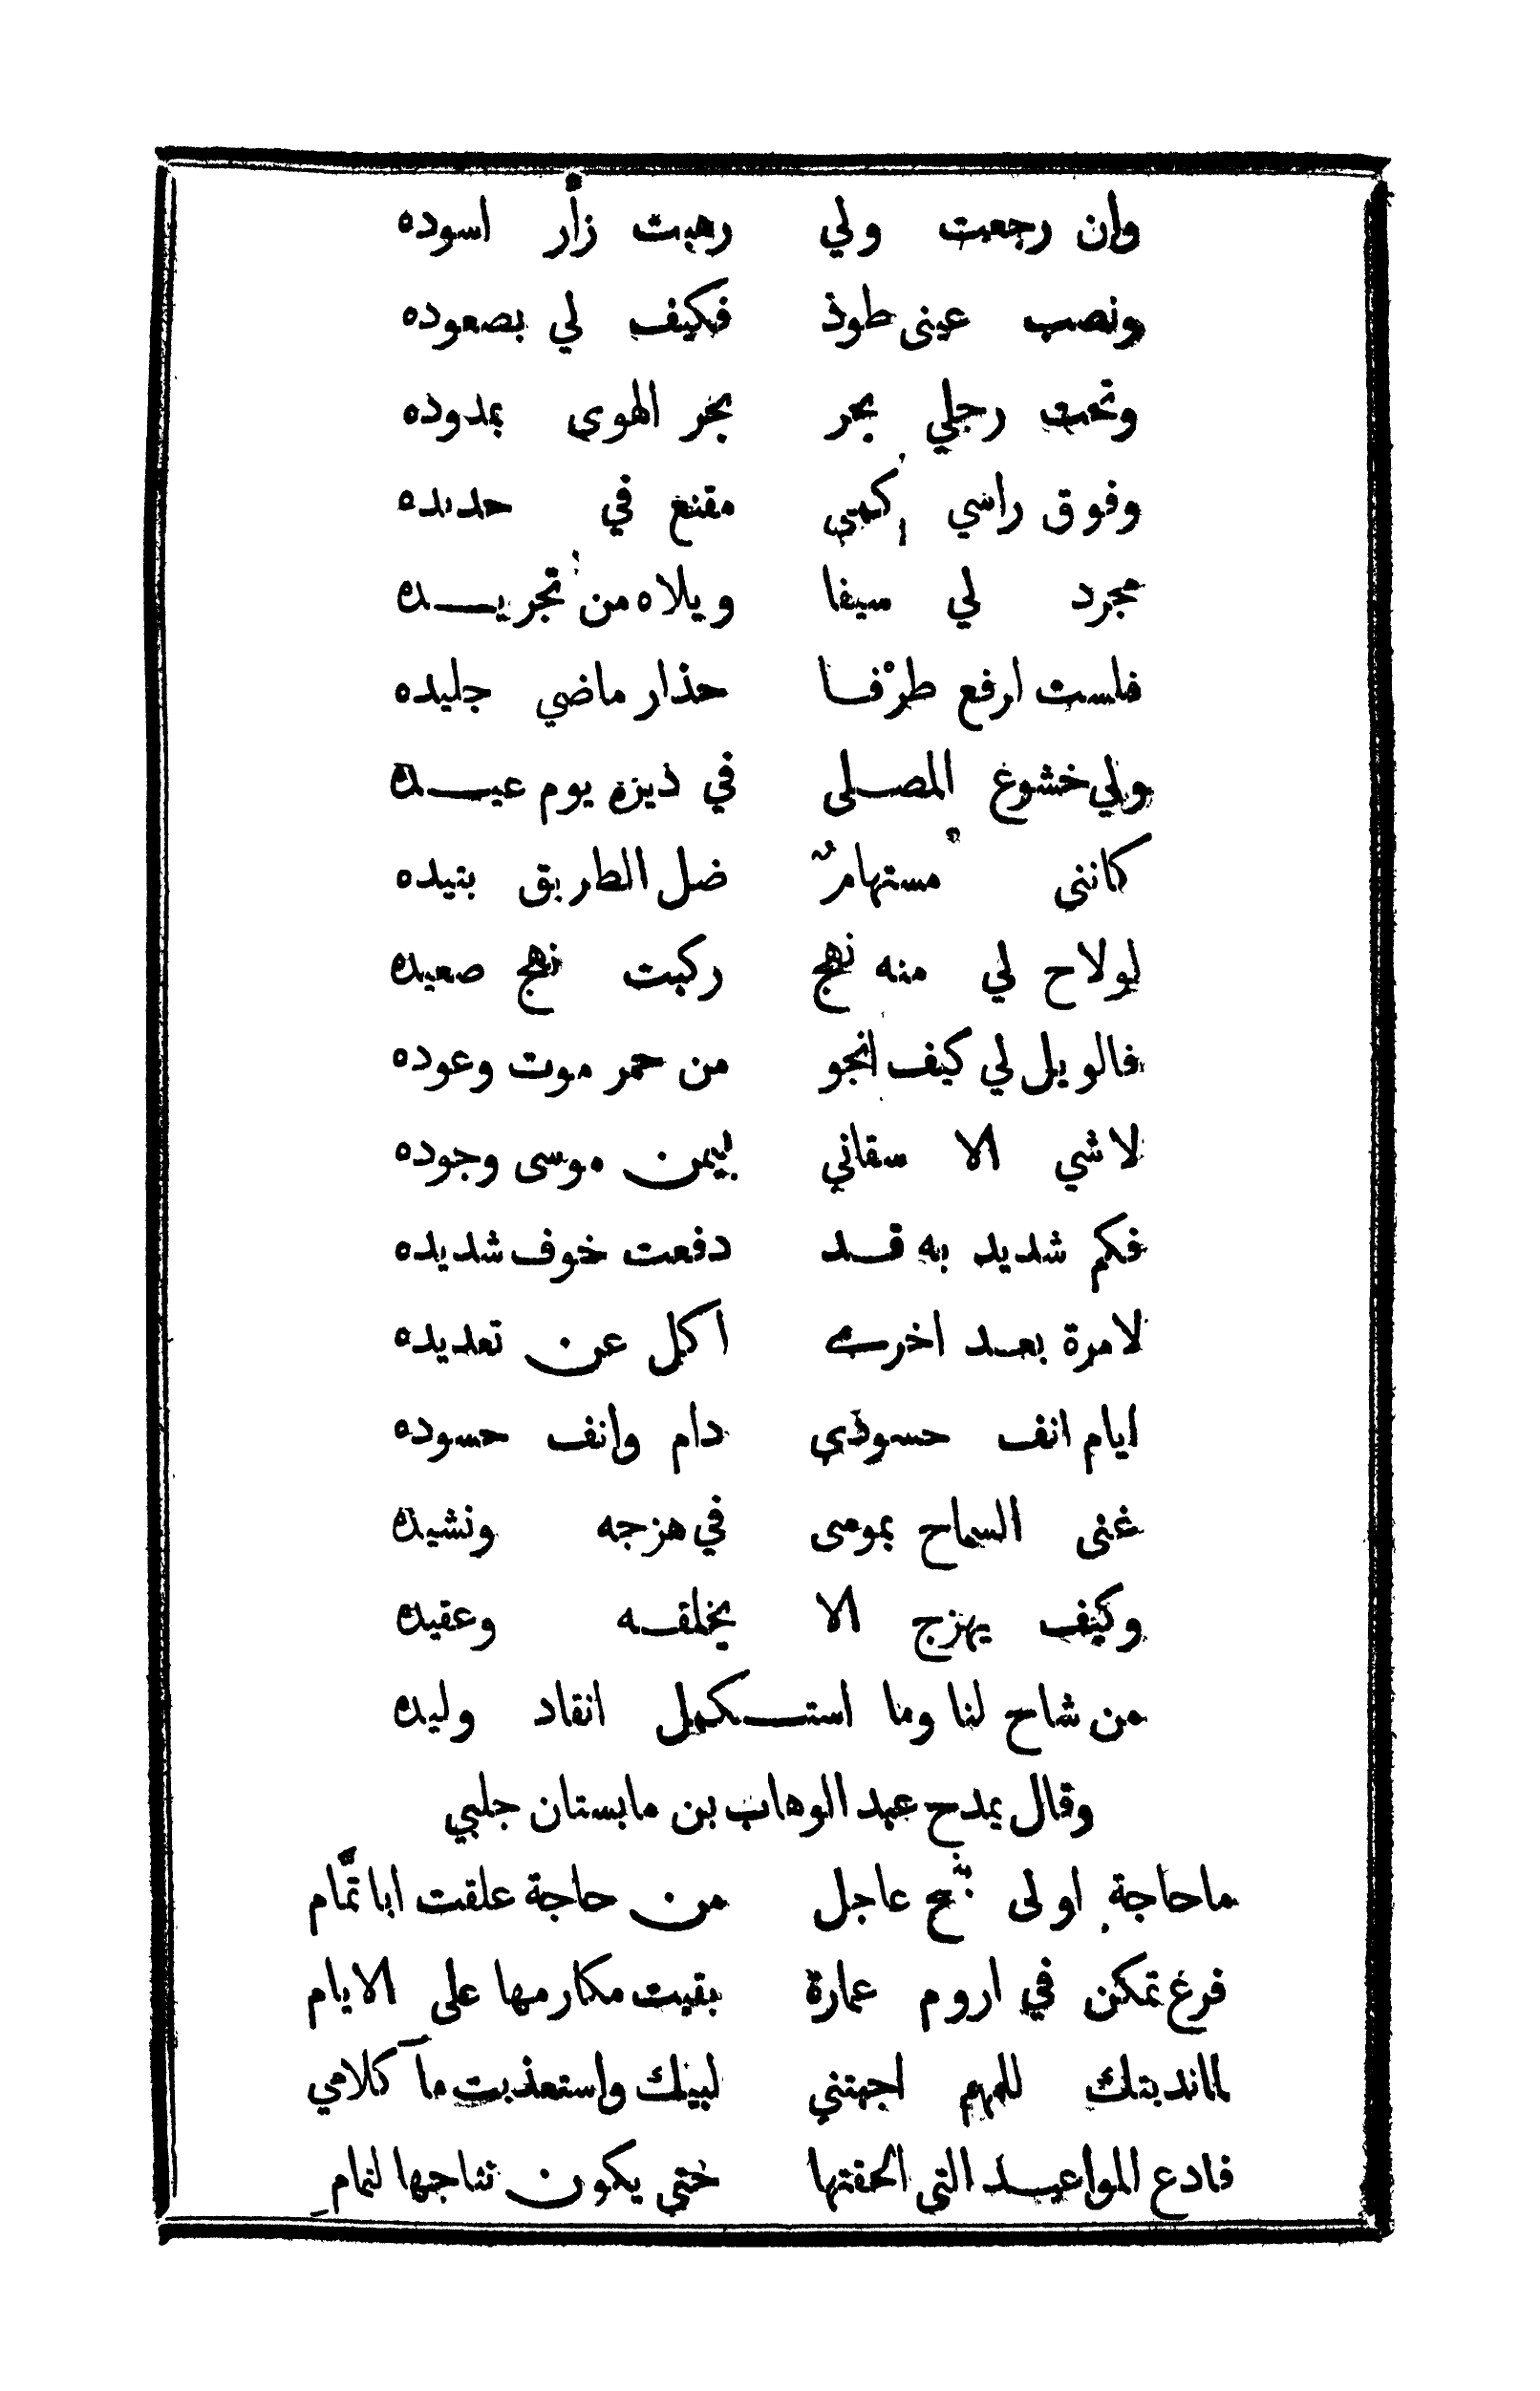 وان رجعت ولي رهبت زأر اسوده
ونصب عينى طوذ فكيف لي بصعوده
وتحت رجلي بحر بحر الهوى بمدوده
وفوق راسي كمي مقنع في حديده
مجرد لي سيفا ويلاه من تجريده
فلست ارفع طرْفا حذار ماضي جليده
ولي خشوع المصلى في ديزه يوم عيده
كانني مستهامٌ ضل الطريق بتيده
لولاح لي منه نهج ركبت نهج صعيده
فالويل لي كيف انجو من حمر موت وعوده
لاشي الا سقاني بيمن موسى وجوده
فكم شديد به قد دفعت خوف شديده
لامرة بعد اخرى اكل عن تعديده
ايام انف حسودى دام وانف حسوده
غنى السماح بموسى في هزجه ونشيده
وكيف يهزج الا بخلقه وعقيده
من شاح لنا وما استكمل انقاد وليده
وقال يمدح عبد الوهاب بن مابستان جلبي
ماحاجة اولى بنجح عاجل من حاجة علقت ابا تمّام
فرغ تمكن في اروم عمارة بقيت مكارمها على الايام
لماندبتك للمهم اجبتني لبيك واستعذبت مآ كلامي
فادع المواعيد التى الحفتها حتي يكون نتاجها لتمام